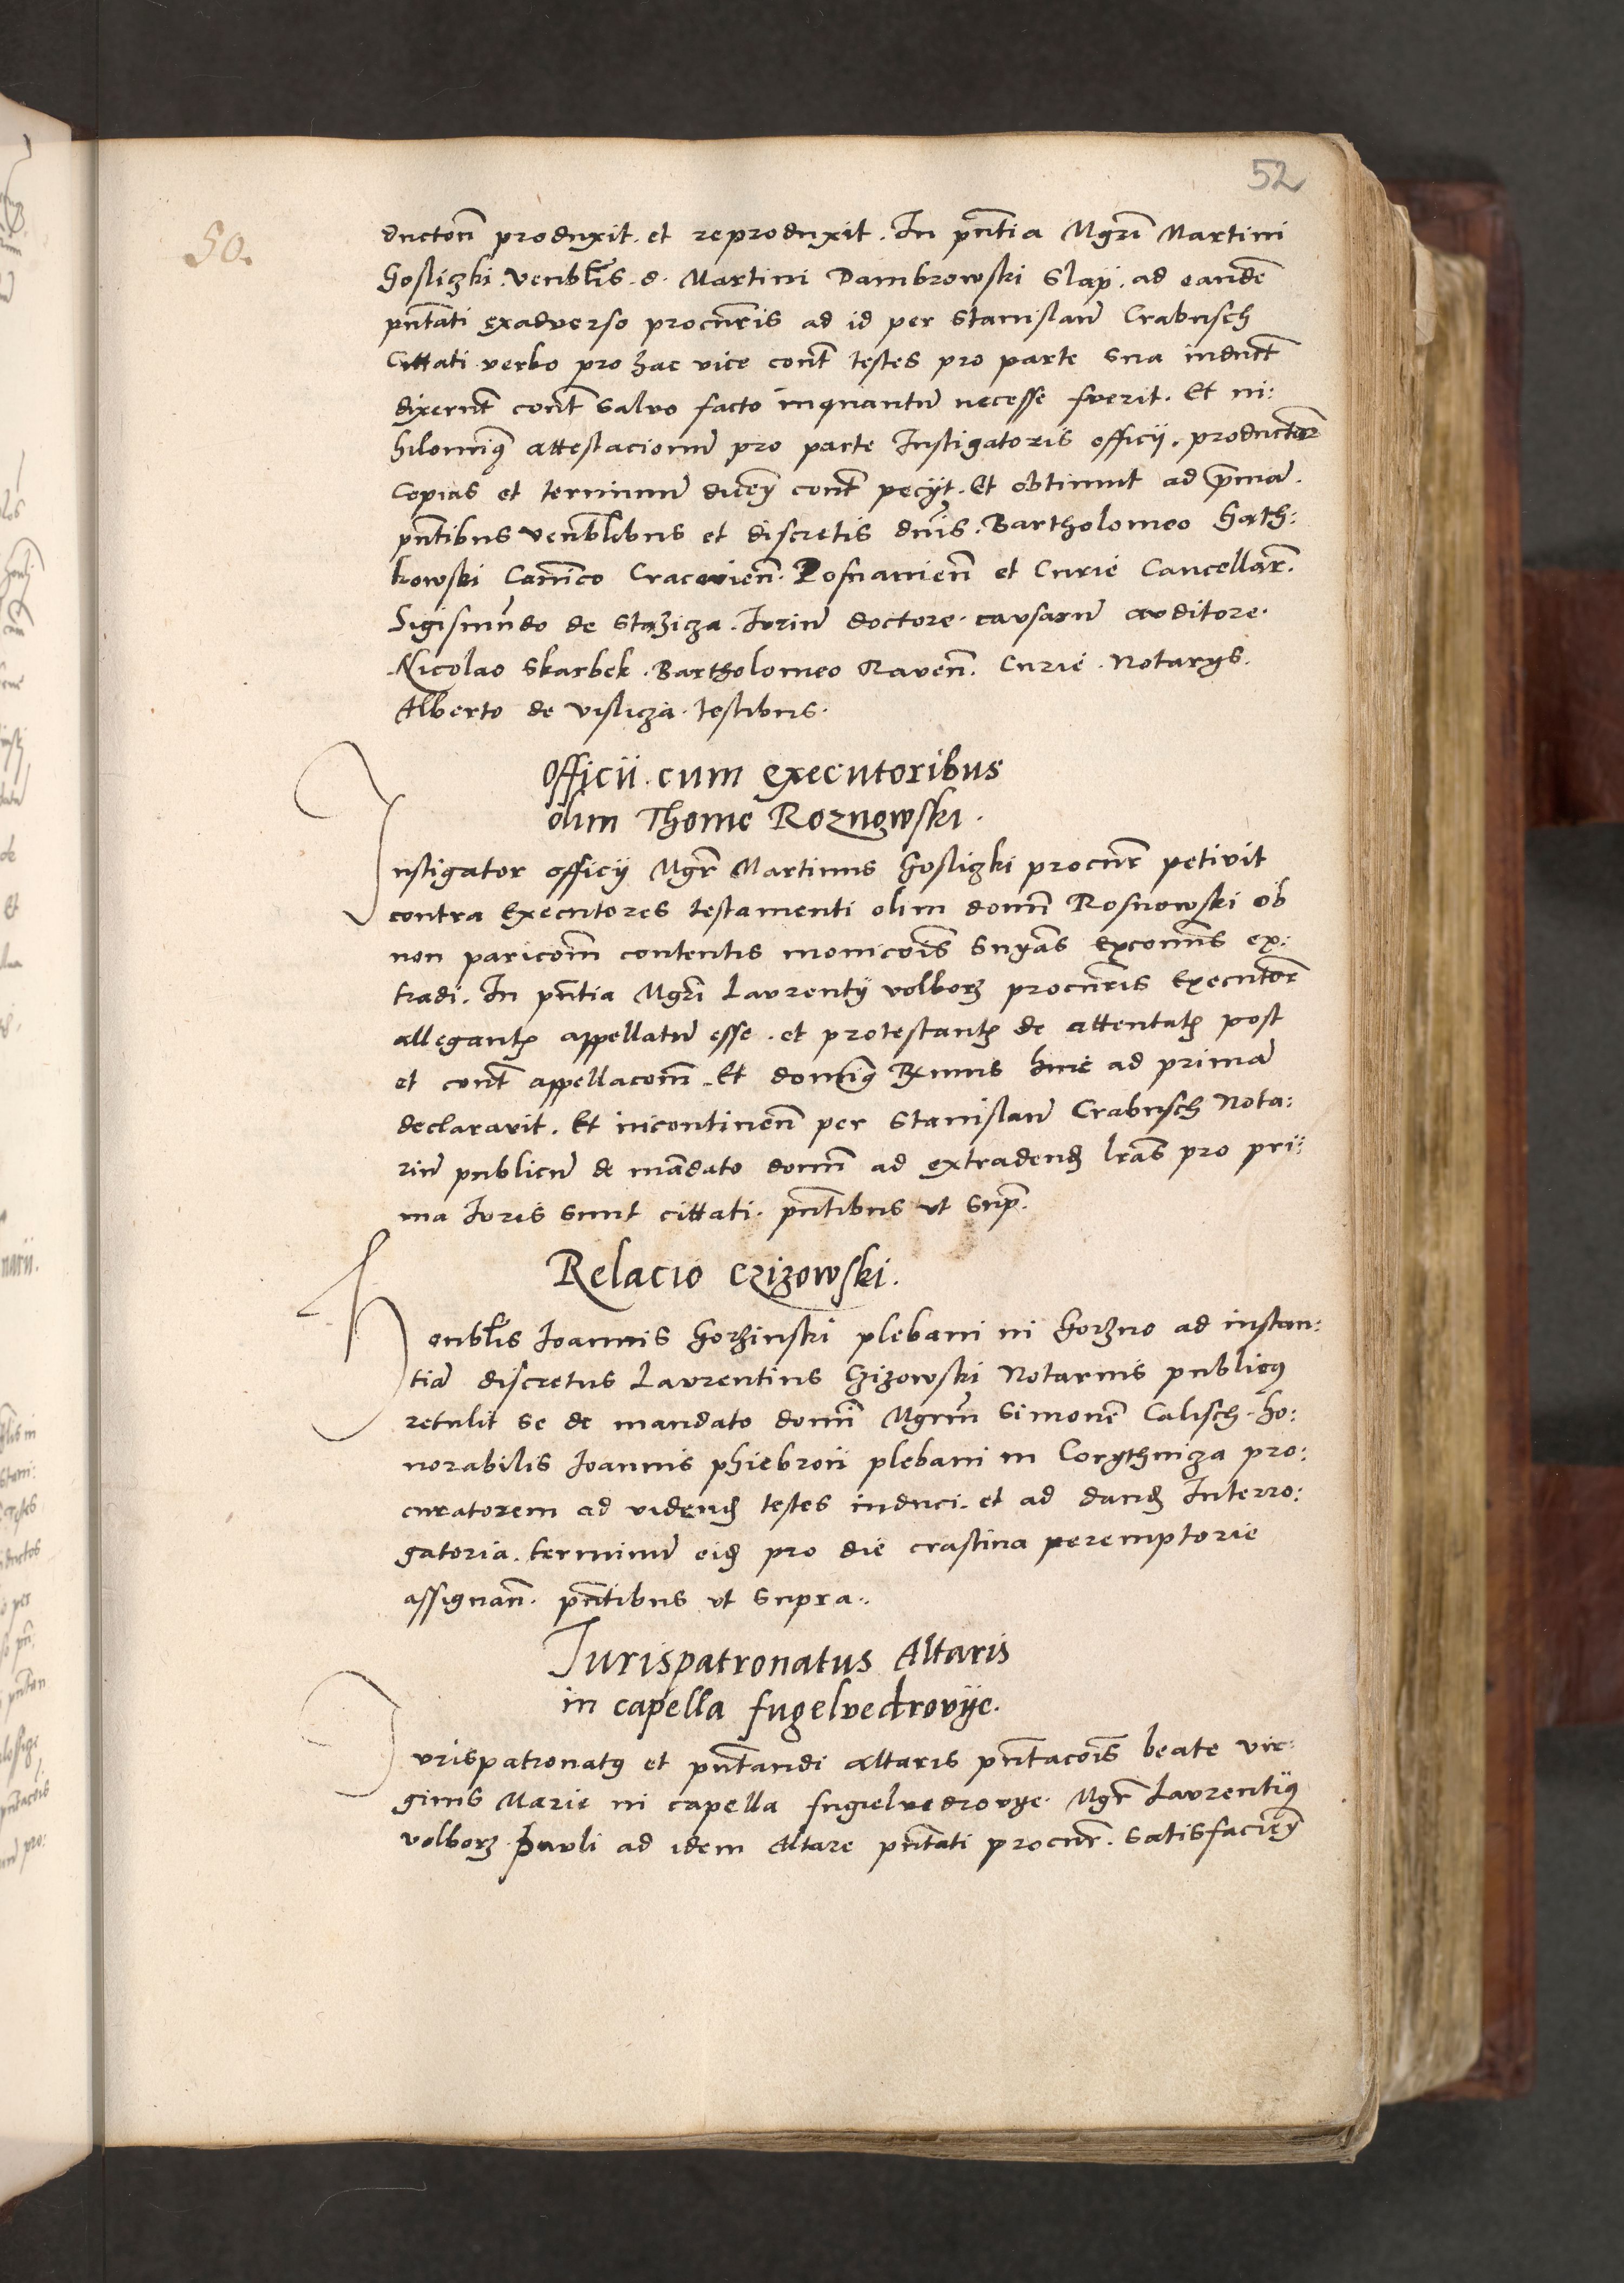 52
50.
ductoñ produxit. et reproduxit. In pñtia Mgrĩ Martini
Gosliczki. Venblĩs. d. Martini Dambrowski Slap. ad eandẽ
pñtati exadverso procuñris ad id per Stanislaũ Crabusch
Cittati verbo pro hac vice conť testes pro parte sua induct̃
dixeruñt conť salvo facto inquantũ necesse fuerit. Et ni:
hilominꝰ attestacionũ pro parte Instigatoris officij. productař
Copias et terminũ conť pecijt. Et obtinuit ad p̃rima.
pñtibus venblĩbus et discretis dnĩs. Bartholomeo Gath:
kowski Canõico Cracovieñ. Posnanieñ et Curie Cancellař.
Sigismũndo de Stazicza. Juriũ doctore. causarũ auditore.
Nicolao Skarbek. Bartholomeo Raveñ. Curie. Notarys.
Alberto de Vislicza. testibus.
Officii. cum executoribus
olim Thome Roznowski.
Instigator officij Mgř Martinus Gosliczki procuř petivit
contra Executores testamenti olim domñ Rosnowski ob
non paricoñm contentis monicoĩs excomñs ex:
tradi. In pñtia Mgrĩ Laurentij volborz procuñris Executoř
allegantꝭ appellatũ esse. et protestantꝭ de attentatꝭ post
et conť appellacoñm. Et dominꝰ huic ad primã
declaravit. Et incontineñ per Stanislaũ Crabusch Nota:
riũ publicũ de mãdato domñ ad extradendꝭ lrãs pro pri:
ma Juris sunt cittati. pñtibus ut sup̃.
Relacio Czizowski.
Venblĩs Joannis Gorzinski plebani in Gorzno ad instan:
tiã discretus Laurentius Czizowski Notarius publicꝰ
retulit se de mandato domñi Mgrũm Simonẽ Calisch. ho:
norabilis Joannis phiebroii plebani in Corythnicza pro:
curatorem ad videndꝭ testes induci. et ad dandꝭ Interro:
gatoria. terminũ eidꝭ pro die crastina peremptorie
assignañ. pñtibus ut supra..
Jurispatronatus Altaris
in capella fugelvedrovije.
Jurispatronatꝰ et pñtandi altaris pñtacoĩs beate vir:
ginis Marie in capella fugielvedrovye. Mgř Laurentijꝰ
volborz Pauli ad idem Altare pñtati procuř. satisfacieñ